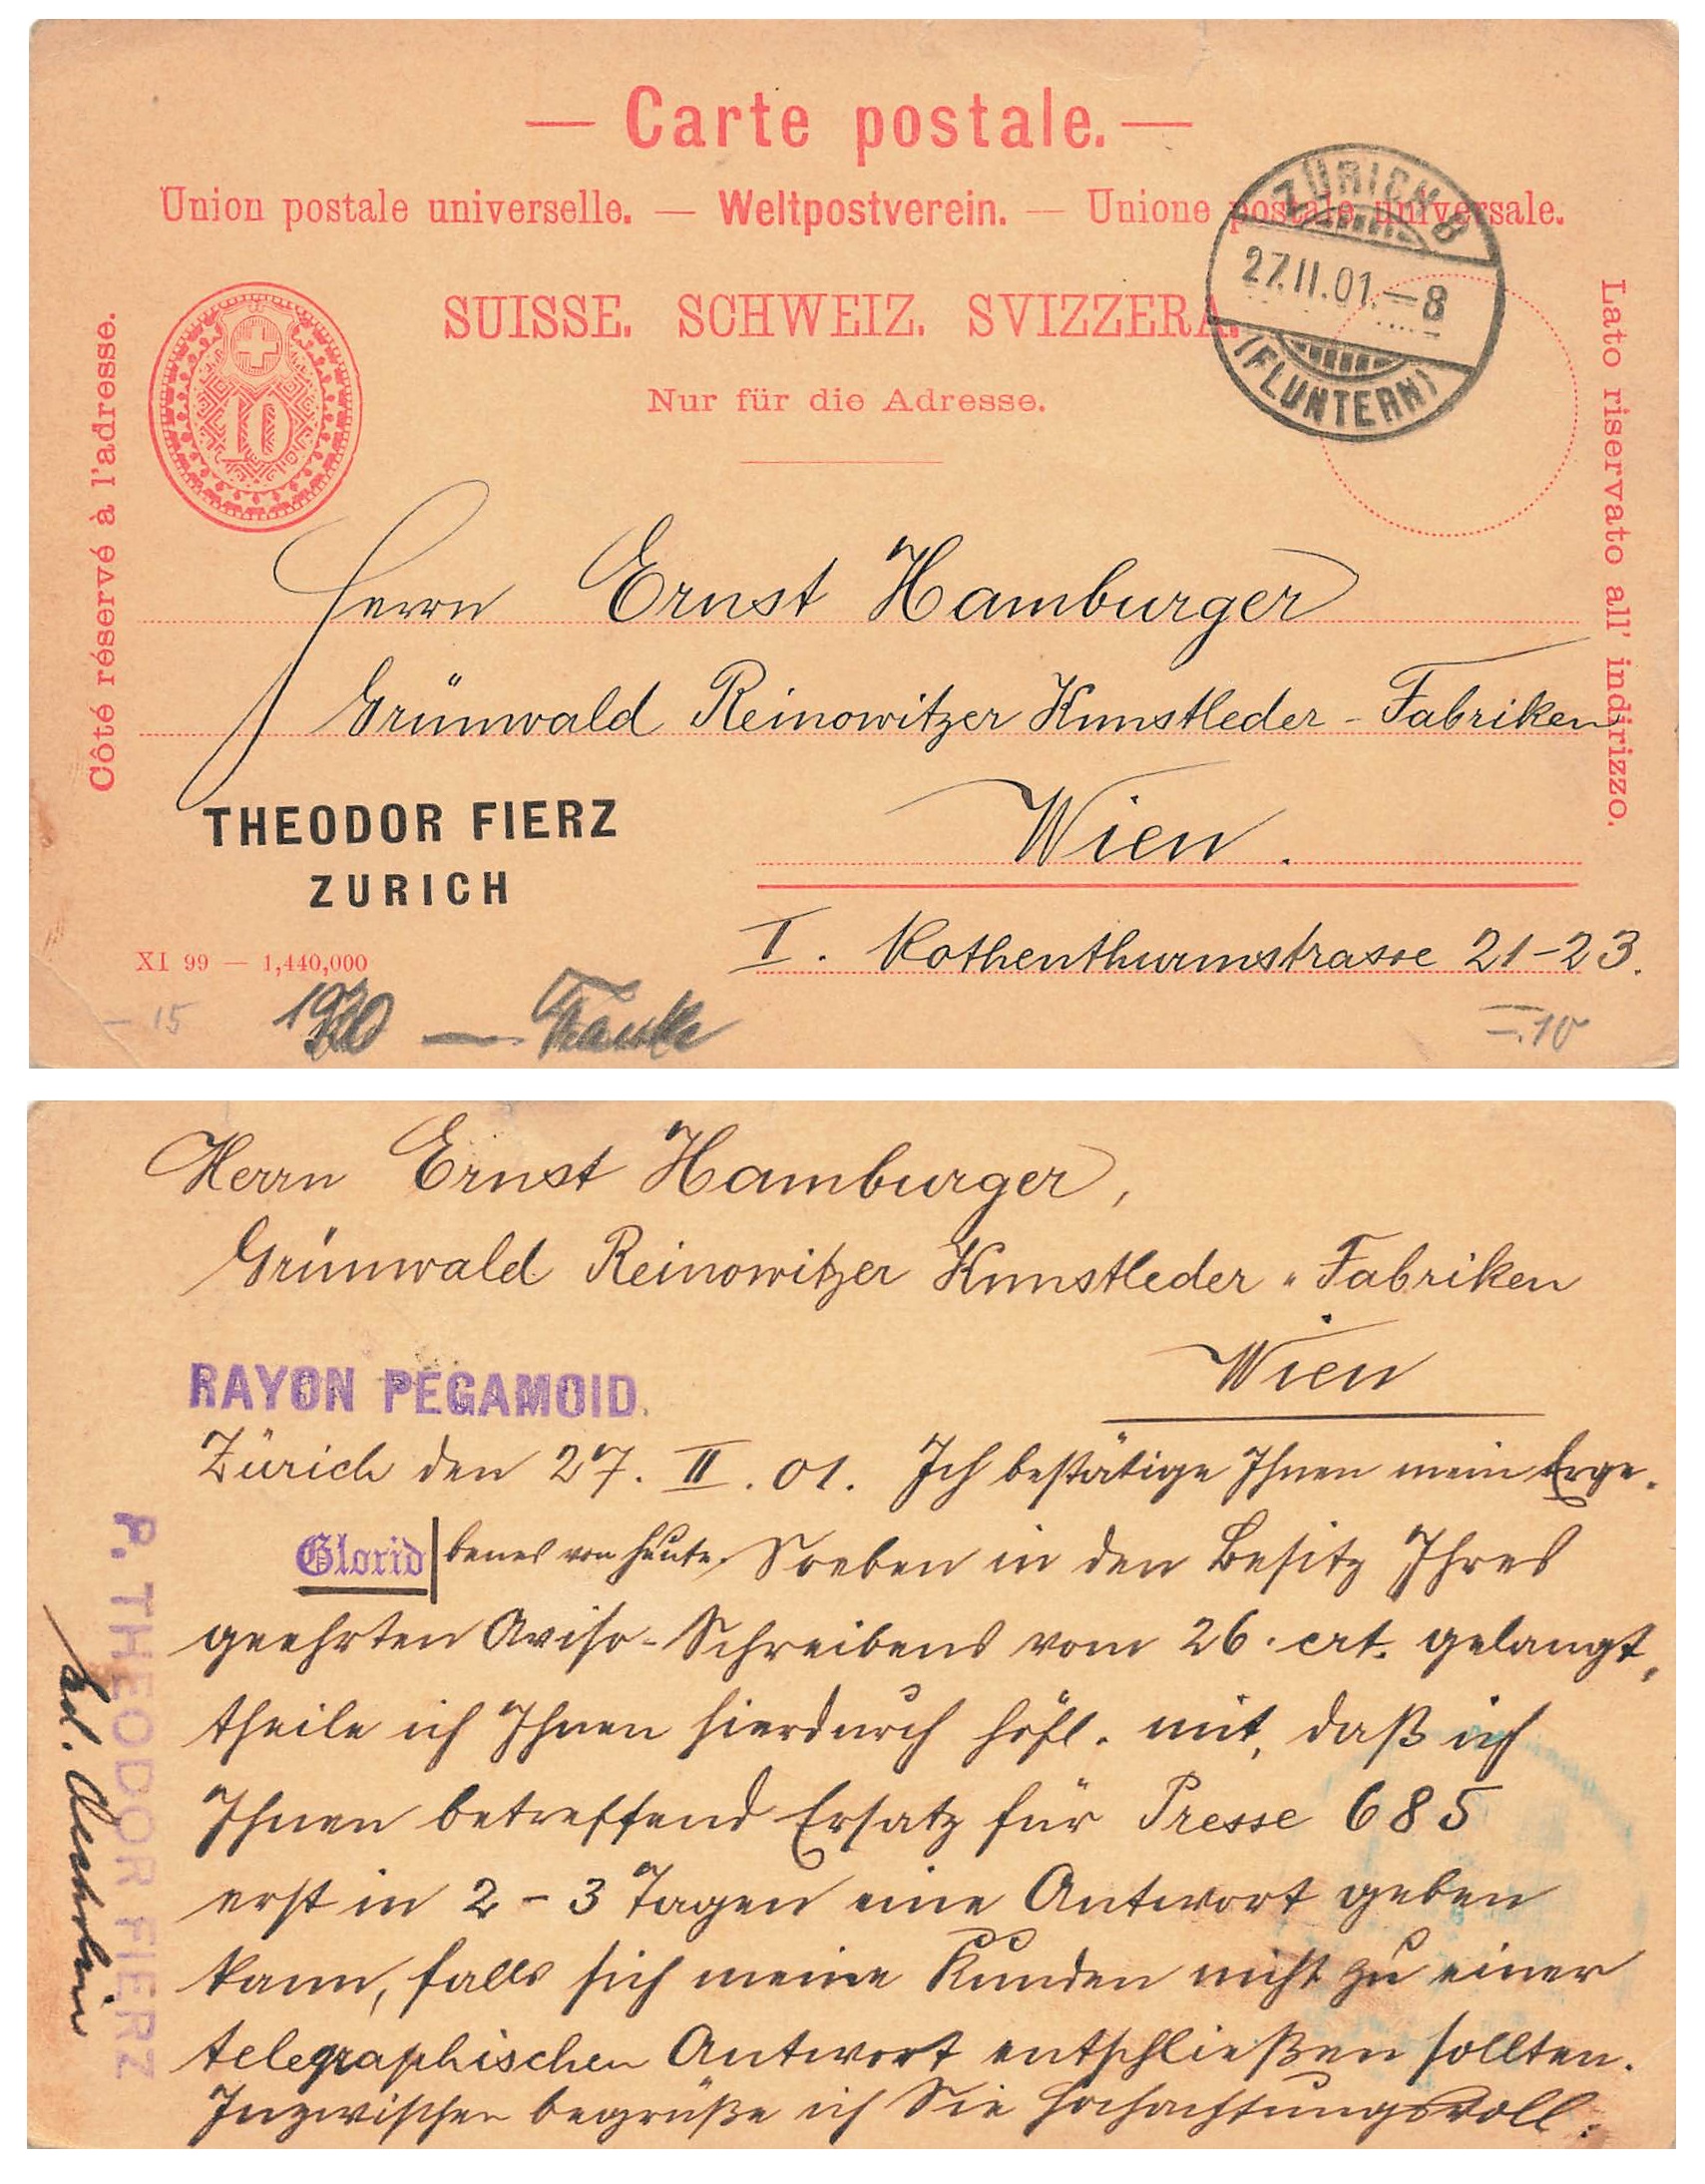 — Carte postale. —
Union postale universelle. — Weltpostverein. — Unione postale universale.
SUISSE. SCHWEIZ. SVIZZERA.
Nur für die Adresse.
Côté réservé à l'adresse.
Lato riservato all' indirizzo.
10
ZÜRICH 8
27.II.01.–8
(FLUNTERN)
Herrn Ernst Hamburger
Grünwald Reinowitzer Kunstleder - Fabriken
Wien.
I. Rothenthurmstrasse 21-23.
THEODOR FIERZ
ZURICH
XI 99 — 1,440,000
– 15
–.10
Herrn Ernst Hamburger,
Grünwald Reinowitzer Kunstleder - Fabriken
Wien
RAYON PEGAMOID.
Zürich den 27. II. 01. Ich bestätige Ihnen mein Erge-
Glorid benes von heute. Soeben in den Besitz Ihres
geehrten Aviso-Schreibens vom 26. crt. gelangt,
theile ich Ihnen hierdurch höfl. mit, daß ich
Ihnen betreffend Ersatz für Presse 685
erst in 2 - 3 Tagen eine Antwort geben
kann, falls sich meine Kunden nicht zu einer
telegraphischen Antwort entschließen sollten.
Inzwischen begrüße ich Sie hochachtungsvoll:
P. THEODOR FIERZ